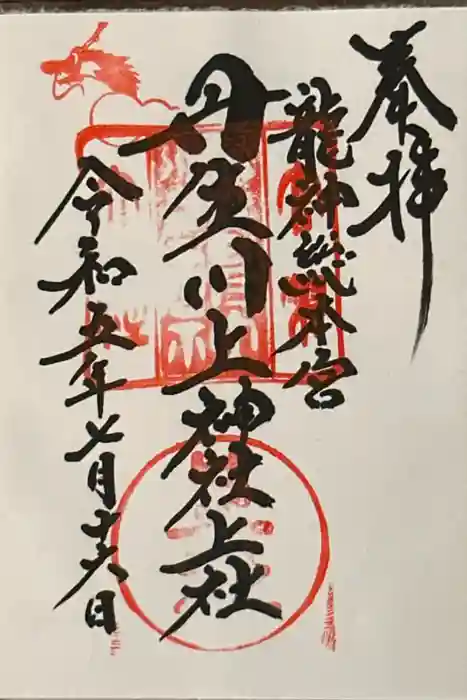 奉拝
龍神總本宮
丹生川上神社上社
令和五年七月十六日